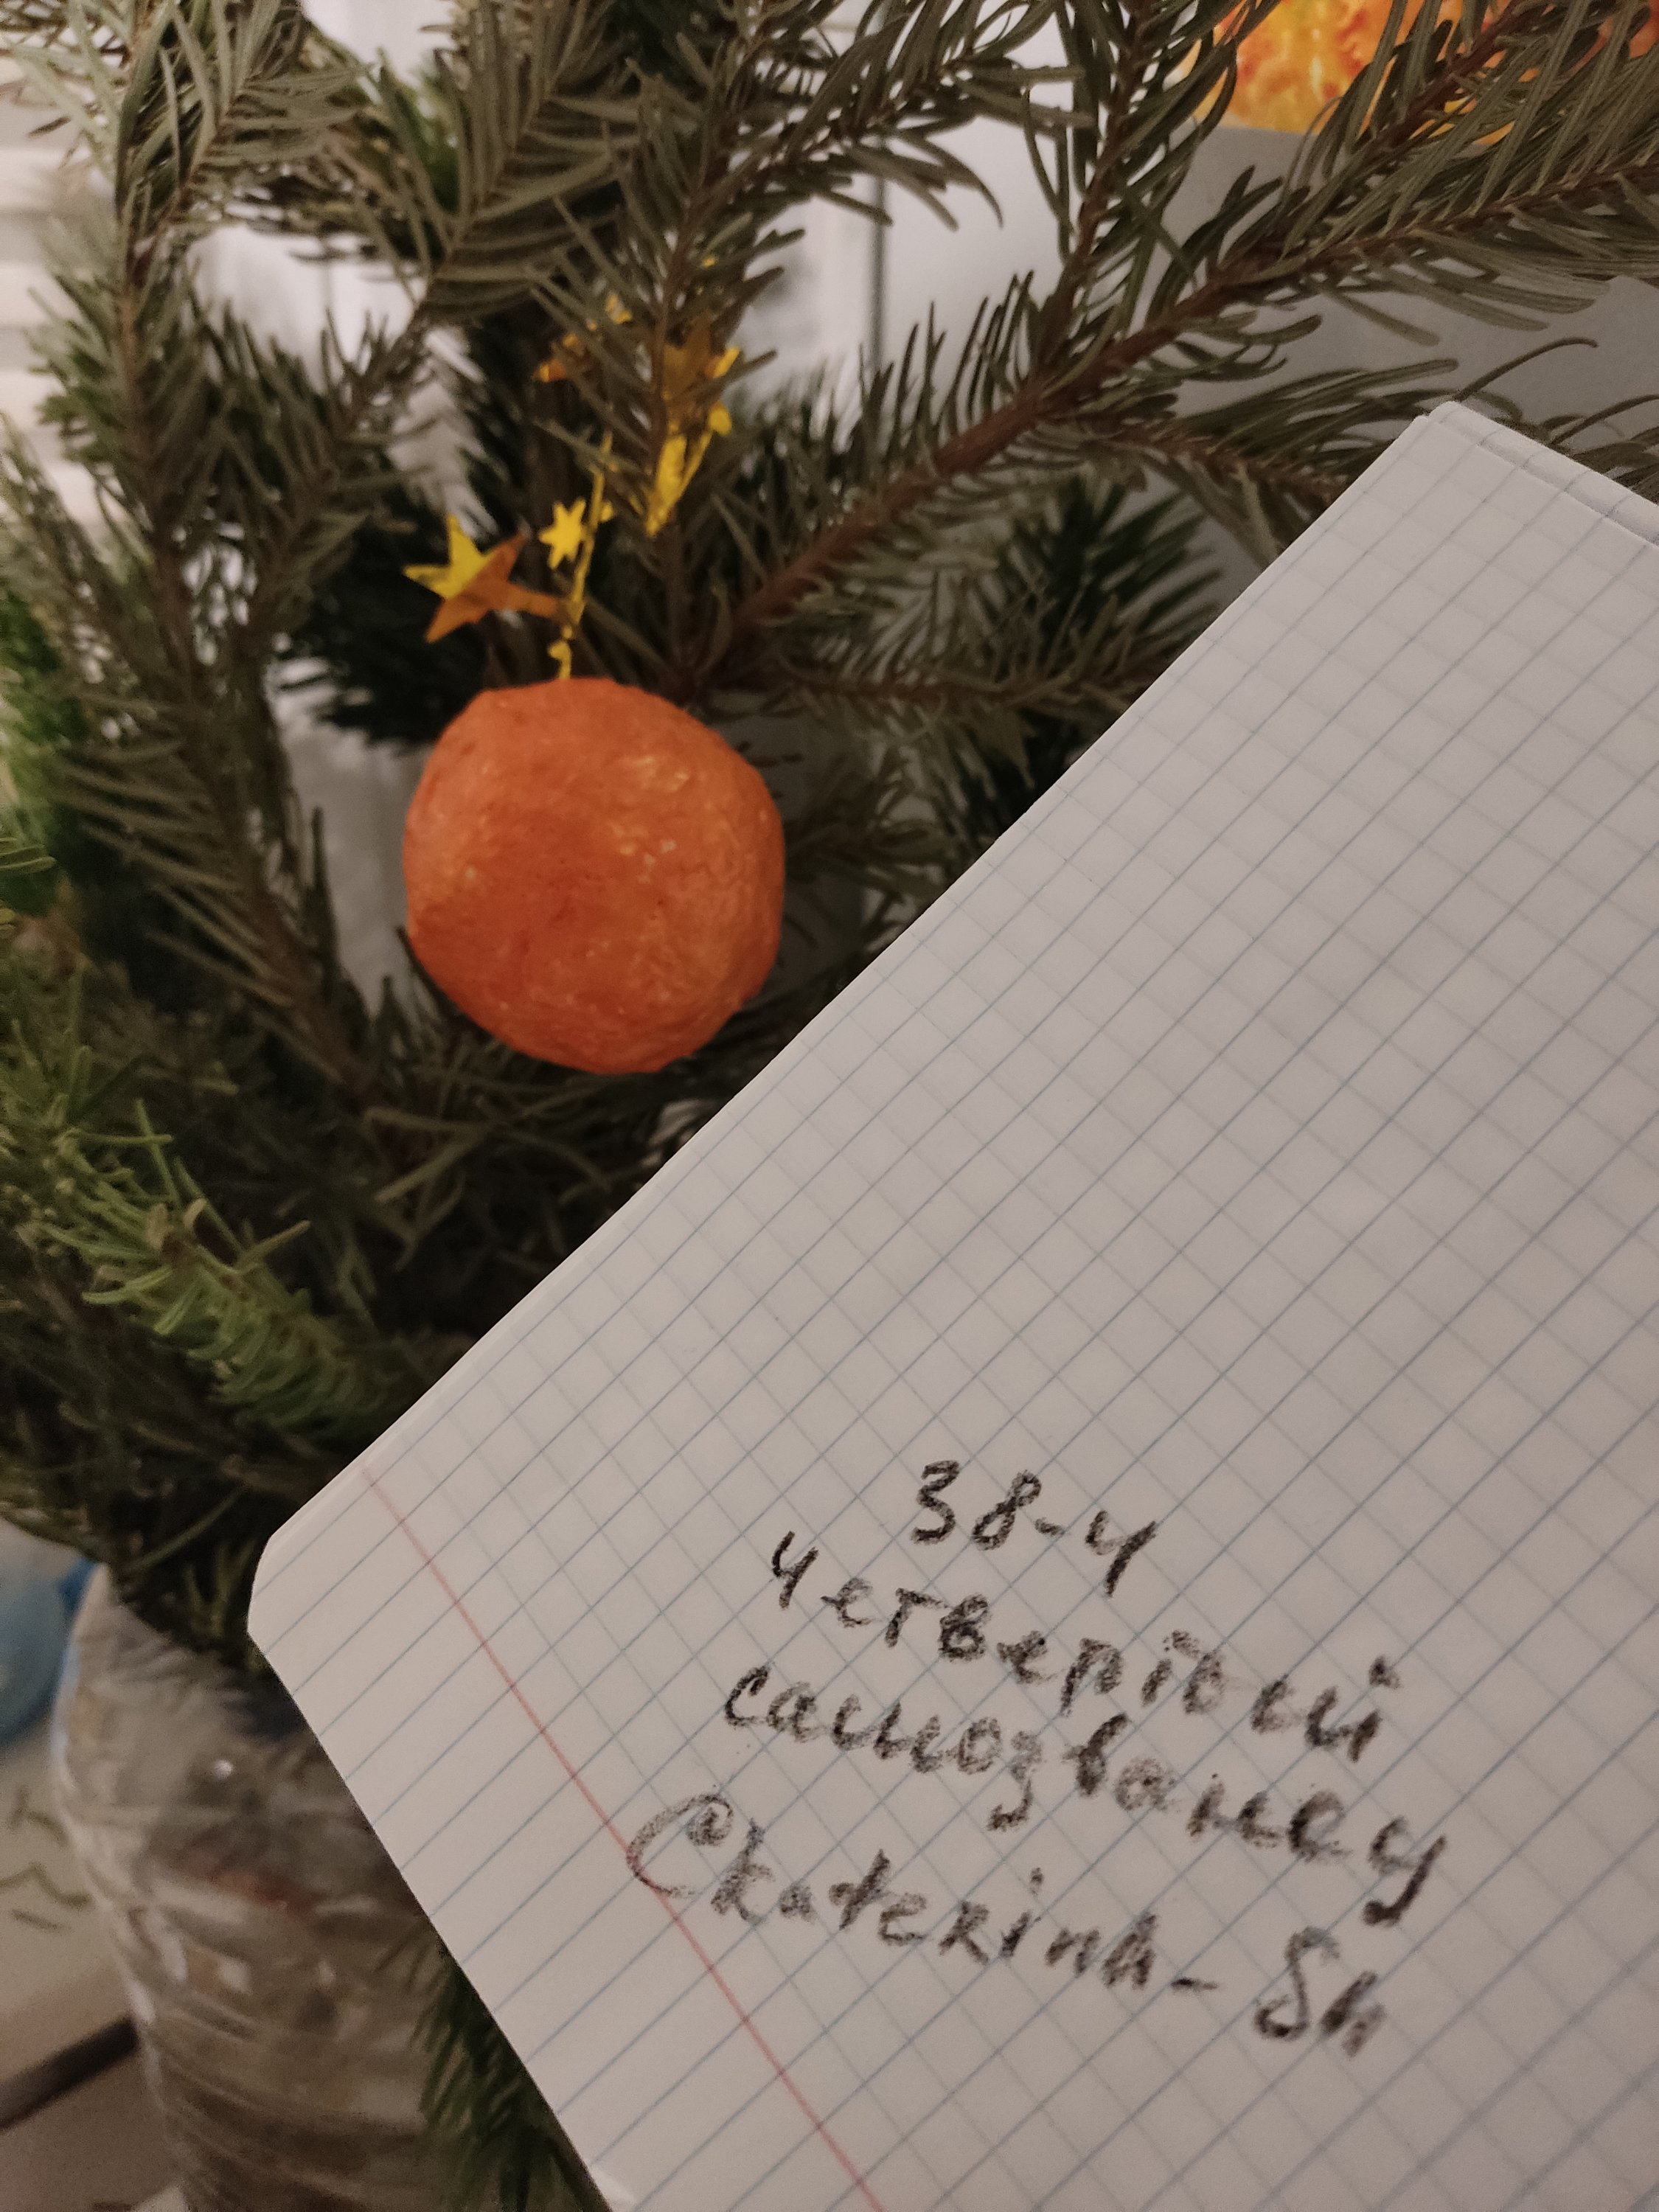 38-4
Четвертый
самозванец
Ekaterina-Sh